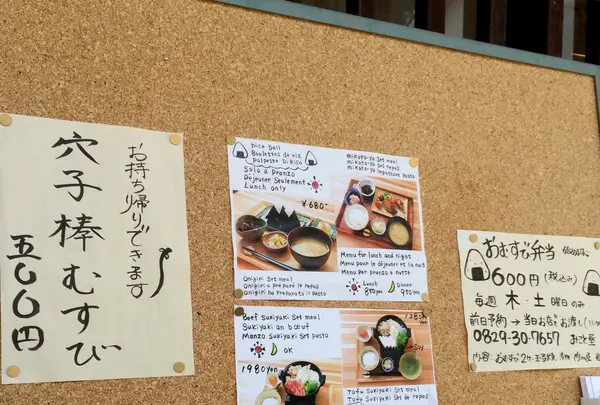 お持ち帰りできます
穴子棒むすび
五〇〇円
rice ball
Boulettes de riz
Polpette Di Riso
Solo a pranzo
Déjeuner Seulement
Lunch only
¥680-
onigiri Set meal
Onigiri a préparé le repas
Onigiri ha preparato il pasto
mikoto-ya Set meal
mikoto-ya Set repas
mikoto-ya impostare pasto
Menu for lunch and night
Menu pour le déjeuner et la nuit
Menu per pranzo e notte
Lunch
Dinner
Beef Sukiyaki Set meal
Sukiyaki an bœuf
Manzo Sukiyaki Set pasto
OK
1980-
1280-
Soy
Tofu Sukiyaki Set meal
Tofu Sukiyaki Set de repas
おむすび弁当
600円(税込み)
毎週 木・土 曜日のみ
前日予約→当日お店でお渡し
0829-30-7657 みこと屋
内容:おむすび2ケ・玉子焼